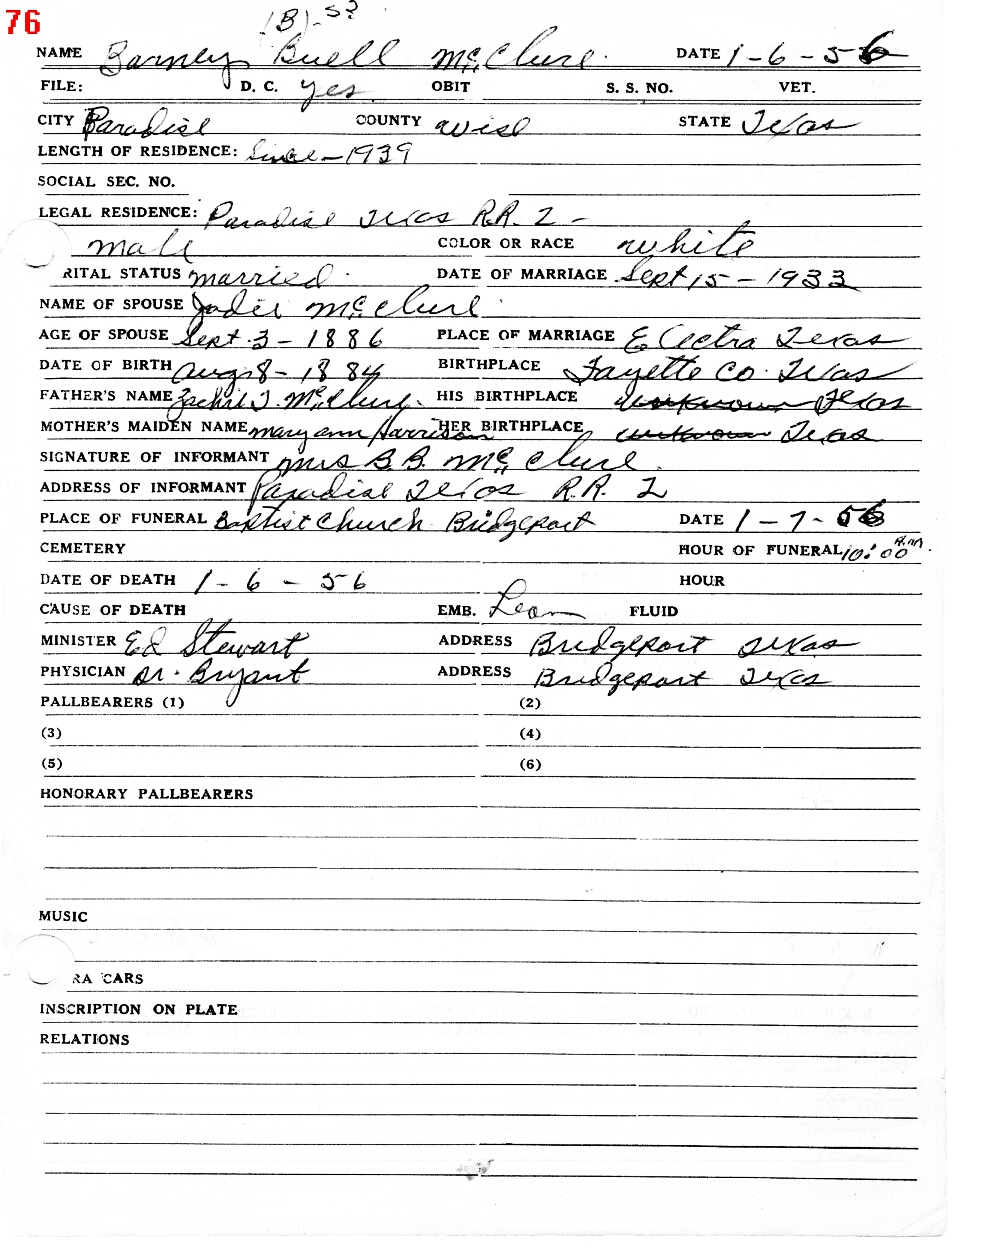 76
(B)-S?
NAME Barney Buell McClure. DATE 1-6-56
FILE: D. C. yes OBIT S. S. NO. VET.
CITY Paradise COUNTY Wise STATE Texas
LENGTH OF RESIDENCE: Since-1939
SOCIAL SEC. NO.
LEGAL RESIDENCE: Paradise Texas R.R. 2-
male COLOR OR RACE white
RITAL STATUS married. DATE OF MARRIAGE Sept 15-1933
NAME OF SPOUSE McClure
AGE OF SPOUSE Sept. 3-1886 PLACE OF MARRIAGE Electra Texas
DATE OF BIRTH Aug 8-1884 BIRTHPLACE Fayette Co. Texas
FATHER'S NAME McClure. HIS BIRTHPLACE unknown Texas
MOTHER'S MAIDEN NAME mary ann Harrison HER BIRTHPLACE unknown Texas
SIGNATURE OF INFORMANT mrs B.B. McClure.
ADDRESS OF INFORMANT Paradise Texas R.R. 2
PLACE OF FUNERAL Baptist Church Bridgeport DATE 1-7-56
CEMETERY HOUR OF FUNERAL 10:00 A.M.
DATE OF DEATH 1-6-56 HOUR
CAUSE OF DEATH EMB. Leon FLUID
MINISTER Ed Stewart ADDRESS Bridgeport Texas
PHYSICIAN Dr. Bryant ADDRESS Bridgeport Texas
PALLBEARERS (1) (2)
(3) (4)
(5) (6)
HONORARY PALLBEARERS
MUSIC
RA CARS
INSCRIPTION ON PLATE
RELATIONS